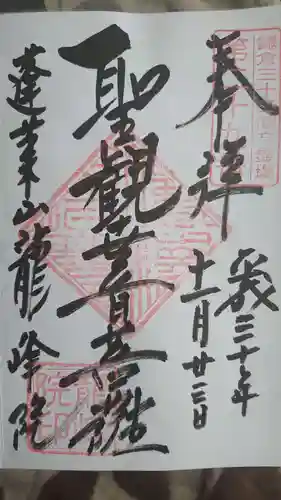 奉拝
平成三十年
十一月廿三日
聖観世音菩薩
蓬莱山龍峰院
鎌倉三十三
第二十九